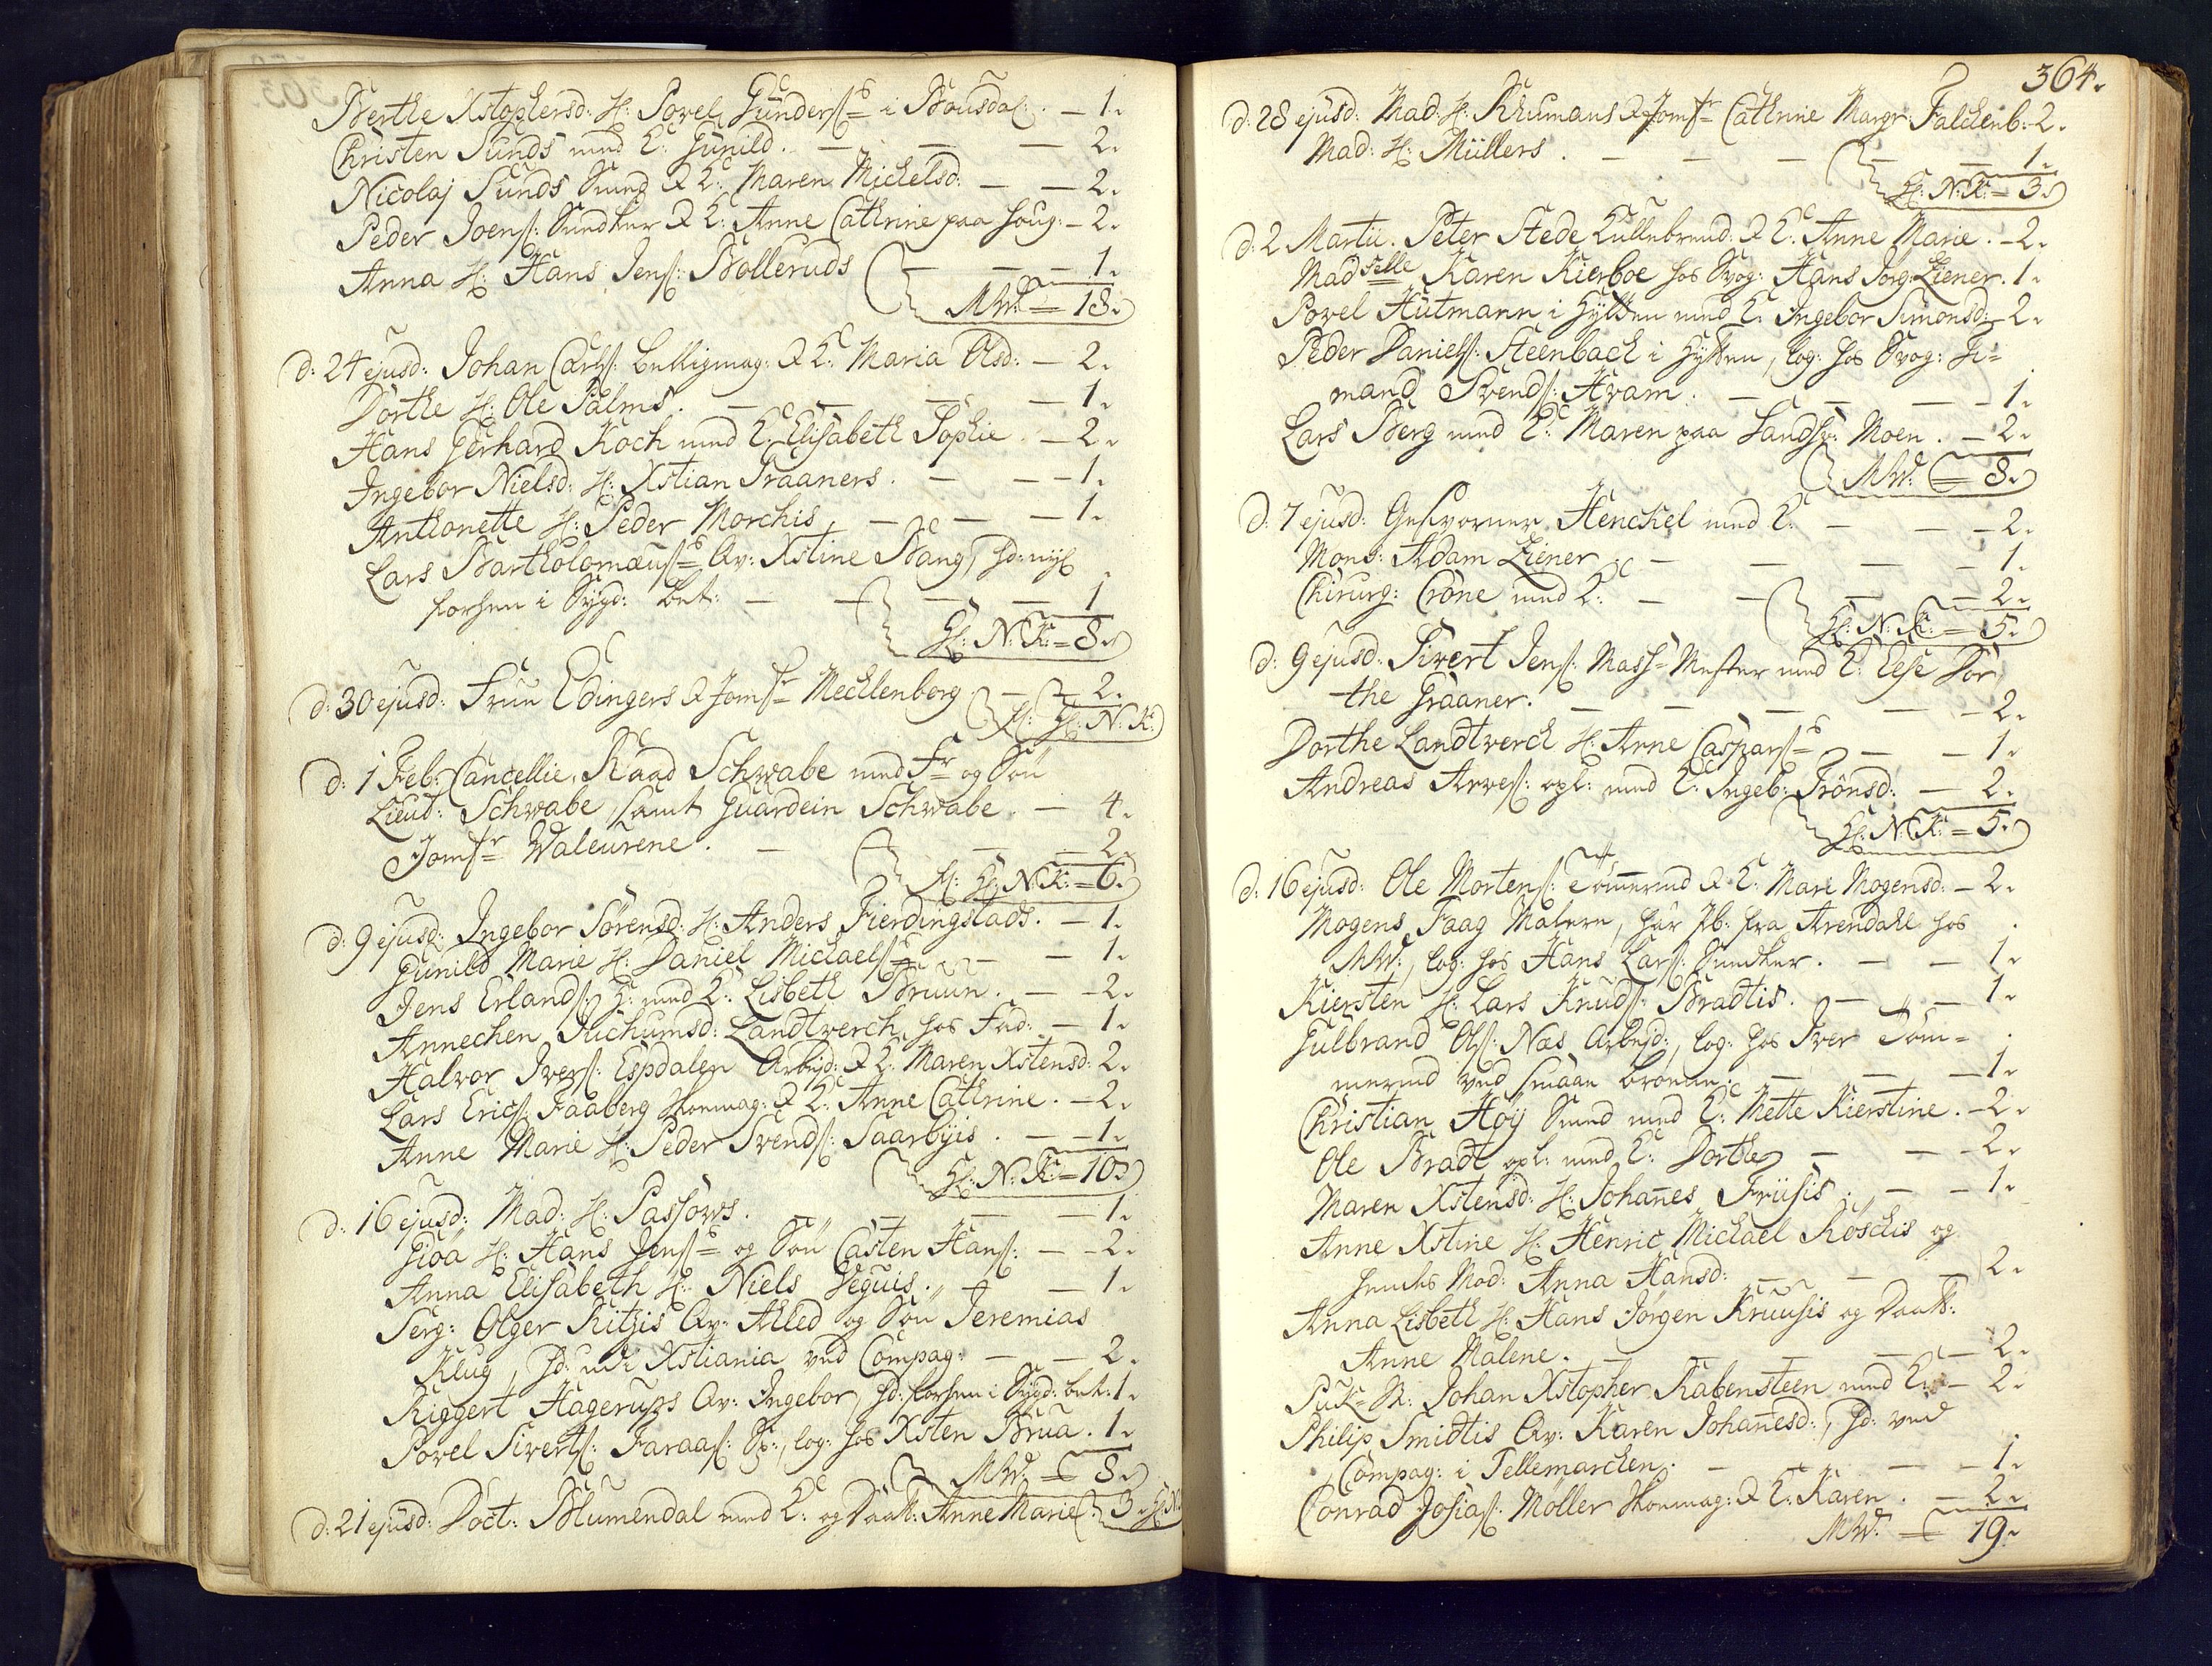 Berthe Xstophersd: H: Povel Gunders: i Bousdal. — 1.
Christen Sunds med K: Gunild. — — — 2.
Nicolaj Sunds Smed & K: Maren Michelsd: — — 2.
Peder Joens: Snedker & K: Anne Cathrine paa Houg: — 2.
Anna H: Hans Jens: Bolleruds — — — 1.
MW. = 18.
d: 24 ejusd: Johan Carls: & K: Maria Olsd: — 2.
Dorthe H: Ole Palms. — — — — 1.
Hans Gerhard Koch med K: Elisabeth Sophie. — 2.
Ingebor Nielsd: H: Xstian Graaners. — — — 1.
Anthonette H: Peder Morchis, — — — 1.
Lars Bartholomæus: Qv: Xstine Bang,
i Sygd: bet: — — — — 1
Hr: N: K: = 8.
d: 30 ejusd: Frue Edingers & Jomfr Mecklenborg. — 2.
Hr: N: K:
d: 1 Feb: Cancellie-Raad Schwabe med Fr og Søn
Lieut: Schwabe, samt Guardein Schwabe. — 4.
Jomfr Waleurene. — — — 2.
Hr: N: K: = 6.
d: 9 ejusd: Ingebor Sørensd: H: Anders Fierdingstads. — 1.
Gunild Marie H: Daniel Michaels: — — 1.
Jens Erlands: med K: Lisbeth Bruun. — 2.
Annechen Juchumsd: Landtverch, hos Fad: — 1.
Halvor Ivers: Espdalen Arbejd: & K: Maren Xstensd: 2.
Lars Erics: Faaberg Skomag: & K: Anne Cathrine. — 2.
Anne Marie H: Peder Svends: Saarbyis. — — 1.
Hr: N: K: = 10.
d: 16 ejusd: Mad: H: Passows. — — — — 1.
Gioa H: Hans Jens: og Søn Casten Hans: — — 2.
Anna Elisabeth H: Niels Seguis. — — 1.
Serg: Olger Ritzis Qv: Alled og Søn Jeremias
Klug, Xstiania ved Compag: — — 2.
Riggert Hagerups Qv: Ingebor, i Sygd: bet: 1.
Povel Siverts: Faraas: log: hos Xsten Brua. 1.
MW. = 8.
d: 21 ejusd: Doct: Blumendal med K: og Daatt: Anne Marie 3.
364.
d: 28 ejusd: Mad: H: Khumans & Jomfr Cathrine Margr: Falckenb: 2.
Mad: H: Müllers. — — — — 1.
Hr: N: K: = 3.
d: 2 Martii. Peter Stede Kullebrend: & K: Anne Marie. — 2.
Madselle Karen Kierboe hos Svog: Hans Jørg: Ziener. 1.
Povel Hutmann i Hytten med K: Ingebor Simonsd: — 2.
Peder Daniels: Steenbach i Hytten, log: hos Svog: Si=
mand Svends: Hvam. — — — 1.
Lars Berg med K: Maren paa Sands: Moen. — 2.
MW. = 8.
d: 7 ejusd: Gesvorner Henckel med K: — — — 2.
Mons: Adam Ziener — — — — 1.
Chirurg: Crone med K: — — — 2.
Hr: N: K: = 5.
d: 9 ejusd: Sivert Jens: Mass-Mester med K: Else Dor
the Graaner. — — — — 2.
Dorthe Landtverch H: Arne Caspars: — — 1.
Andreas Arves: opl: med K: Ingeb: Trönsd: — 2.
Hr: N: K: = 5.
d: 16 ejusd: Ole Mortens: Tömmermd & K: Mari Mogensd: — 2.
Mogens Faag fra Arendahl hos
MW. log: hos Hans Lars: Snedker. — — 1.
Kiersten H: Lars Knuds: Bradtis. — — 1.
Gulbrand Ols: Næs Arbejd:, log: hos Iver Töm=
mermd ved smaae broerne. — — 1.
Christian Høy Smed med K: Mette Kierstine. — 2.
Ole Bradt opl: med K: Dorthe — — — 2.
Maren Xstensd: H: Johanes Friisis. — — 1.
Anne Xstine H: Henric Michael Röschis og
hendes Mod: Anna Hansd: — — 2.
Anna Lisbeth H: Hans Jørgen Kruusis og Daatt:
Anne Malene. — — — — 2.
Johan Xstopher Rabensteen med K: — 2.
Philip Smidtis Qv: Karen Johanesd:, ved
Compag: i Tellemarchen. — — — — 1.
Conrad Josias: Møller Skomag: & K: Karen. — 2.
MW. = 19.